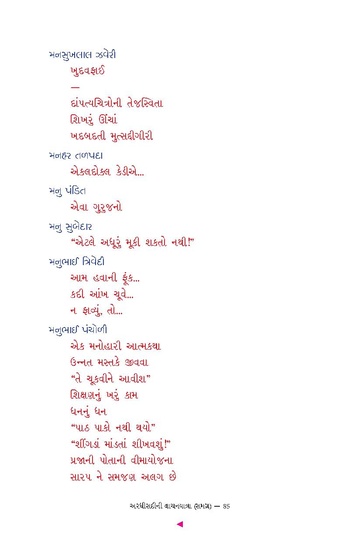 મનસુખલાલ ઝવેરી
ખુદવફાઈ
—
દાંપત્યચિત્રોની તેજસ્વિતા
શિખરું ઊંચાં
ખદબદતી મુત્સદ્દીગીરી
મનહર તળપદા
એકલદોકલ કેડીએ...
મનુ પંડિત
એવા ગુરુજનો
મનુ સુબેદાર
“એટલે અધૂરું મૂકી શકતો નથી!”
મનુભાઈ ત્રિવેદી
આમ હવાની ફૂંક...
કદી આંખ ચૂવે...
ન ફાવ્યું, તો...
મનુભાઈ પંચોળી
એક મનોહારી આત્મકથા
ઉન્નત મસ્તકે જીવવા
“તે ચૂકવીને આવીશ”
શિક્ષણનું ખરું કામ
ધનનું ધન
“પાઠ પાકો નથી થયો”
“શીંગડાં માંડતાં શીખવશું!”
પ્રજાની પોતાની વીમાયોજના
સારપ ને સમજણ અલગ છે
અરધીસદીની વાચનયાત્રા (સમગ્ર) — 85